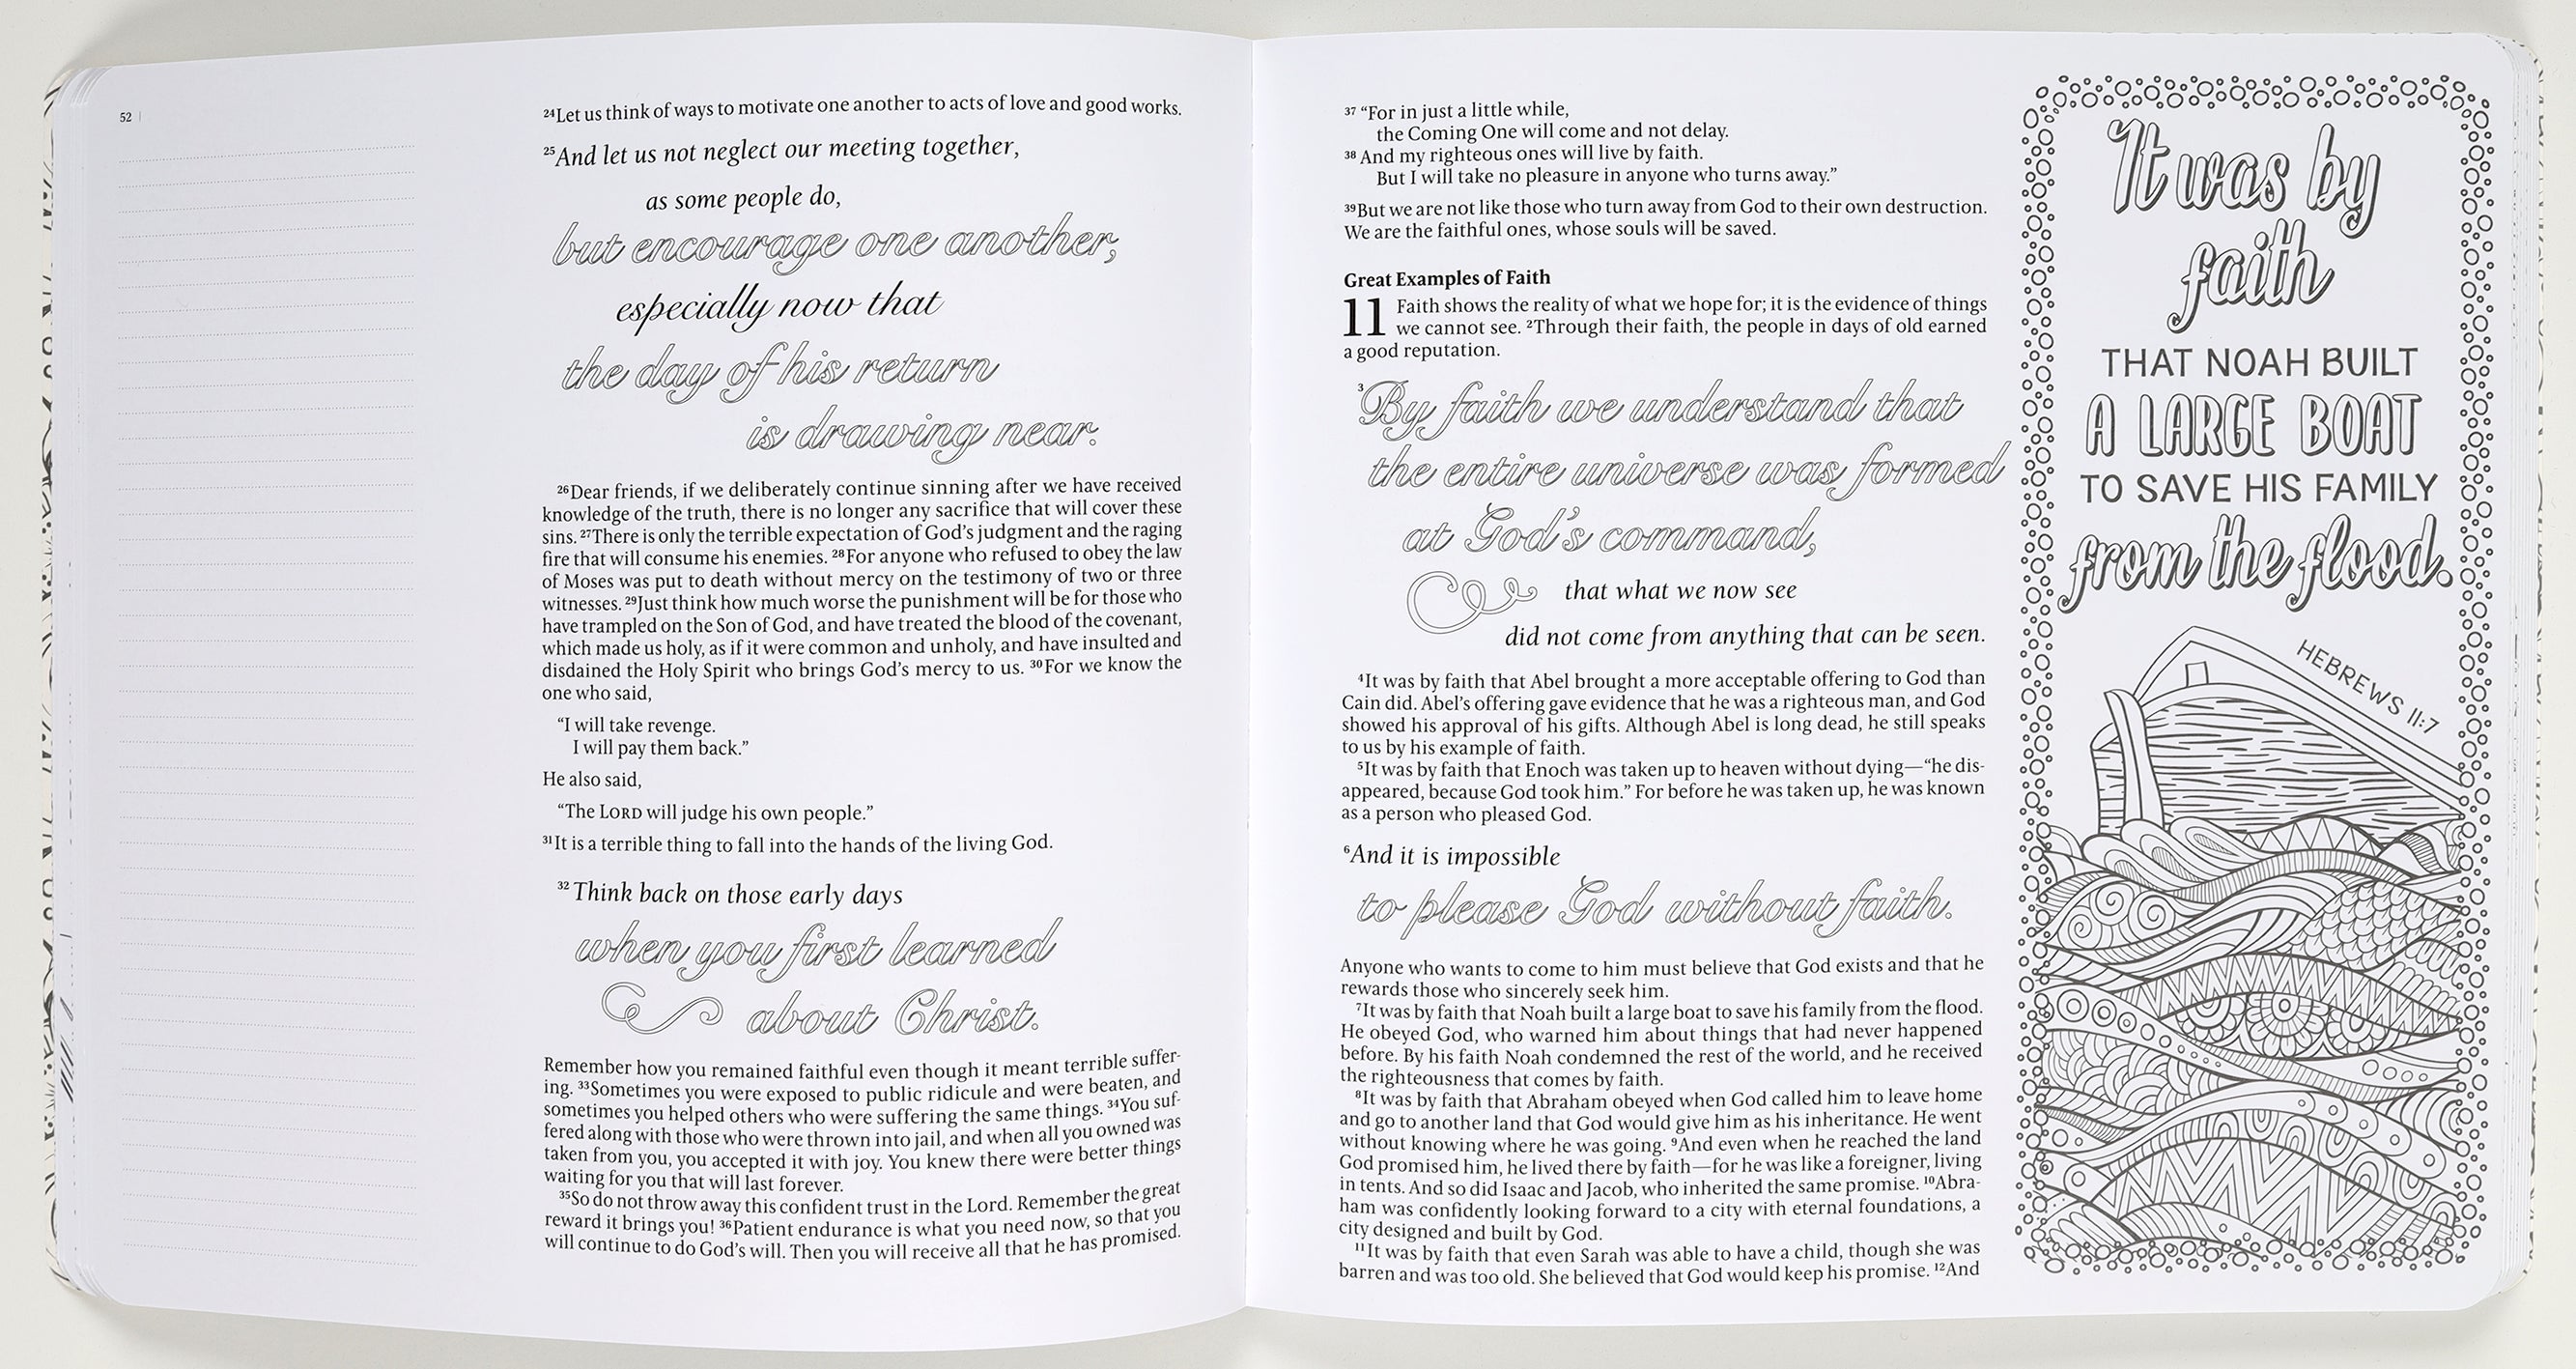 52
²⁴Let us think of ways to motivate one another to acts of love and good works.
²⁵And let us not neglect our meeting together,
as some people do,
but encourage one another,
especially now that
the day of his return
is drawing near.
²⁶Dear friends, if we deliberately continue sinning after we have received
knowledge of the truth, there is no longer any sacrifice that will cover these
sins. ²⁷There is only the terrible expectation of God’s judgment and the raging
fire that will consume his enemies. ²⁸For anyone who refused to obey the law
of Moses was put to death without mercy on the testimony of two or three
witnesses. ²⁹Just think how much worse the punishment will be for those who
have trampled on the Son of God, and have treated the blood of the covenant,
which made us holy, as if it were common and unholy, and have insulted and
disdained the Holy Spirit who brings God’s mercy to us. ³⁰For we know the
one who said,
“I will take revenge.
I will pay them back.”
He also said,
“The LORD will judge his own people.”
³¹It is a terrible thing to fall into the hands of the living God.
³²Think back on those early days
when you first learned
about Christ.
Remember how you remained faithful even though it meant terrible suffer-
ing. ³³Sometimes you were exposed to public ridicule and were beaten, and
sometimes you helped others who were suffering the same things. ³⁴You suf-
fered along with those who were thrown into jail, and when all you owned was
taken from you, you accepted it with joy. You knew there were better things
waiting for you that will last forever.
³⁵So do not throw away this confident trust in the Lord. Remember the great
reward it brings you! ³⁶Patient endurance is what you need now, so that you
will continue to do God’s will. Then you will receive all that he has promised.
³⁷“For in just a little while,
the Coming One will come and not delay.
³⁸And my righteous ones will live by faith.
But I will take no pleasure in anyone who turns away.”
³⁹But we are not like those who turn away from God to their own destruction.
We are the faithful ones, whose souls will be saved.
Great Examples of Faith
11 Faith shows the reality of what we hope for; it is the evidence of things
we cannot see. ²Through their faith, the people in days of old earned
a good reputation.
³By faith we understand that
the entire universe was formed
at God’s command,
that what we now see
did not come from anything that can be seen.
⁴It was by faith that Abel brought a more acceptable offering to God than
Cain did. Abel’s offering gave evidence that he was a righteous man, and God
showed his approval of his gifts. Although Abel is long dead, he still speaks
to us by his example of faith.
⁵It was by faith that Enoch was taken up to heaven without dying—“he dis-
appeared, because God took him.” For before he was taken up, he was known
as a person who pleased God.
⁶And it is impossible
to please God without faith.
Anyone who wants to come to him must believe that God exists and that he
rewards those who sincerely seek him.
⁷It was by faith that Noah built a large boat to save his family from the flood.
He obeyed God, who warned him about things that had never happened
before. By his faith Noah condemned the rest of the world, and he received
the righteousness that comes by faith.
⁸It was by faith that Abraham obeyed when God called him to leave home
and go to another land that God would give him as his inheritance. He went
without knowing where he was going. ⁹And even when he reached the land
God promised him, he lived there by faith—for he was like a foreigner, living
in tents. And so did Isaac and Jacob, who inherited the same promise. ¹⁰Abra-
ham was confidently looking forward to a city with eternal foundations, a
city designed and built by God.
¹¹It was by faith that even Sarah was able to have a child, though she was
barren and was too old. She believed that God would keep his promise. ¹²And
It was by
faith
THAT NOAH BUILT
A LARGE BOAT
TO SAVE HIS FAMILY
from the flood.
HEBREWS 11:7